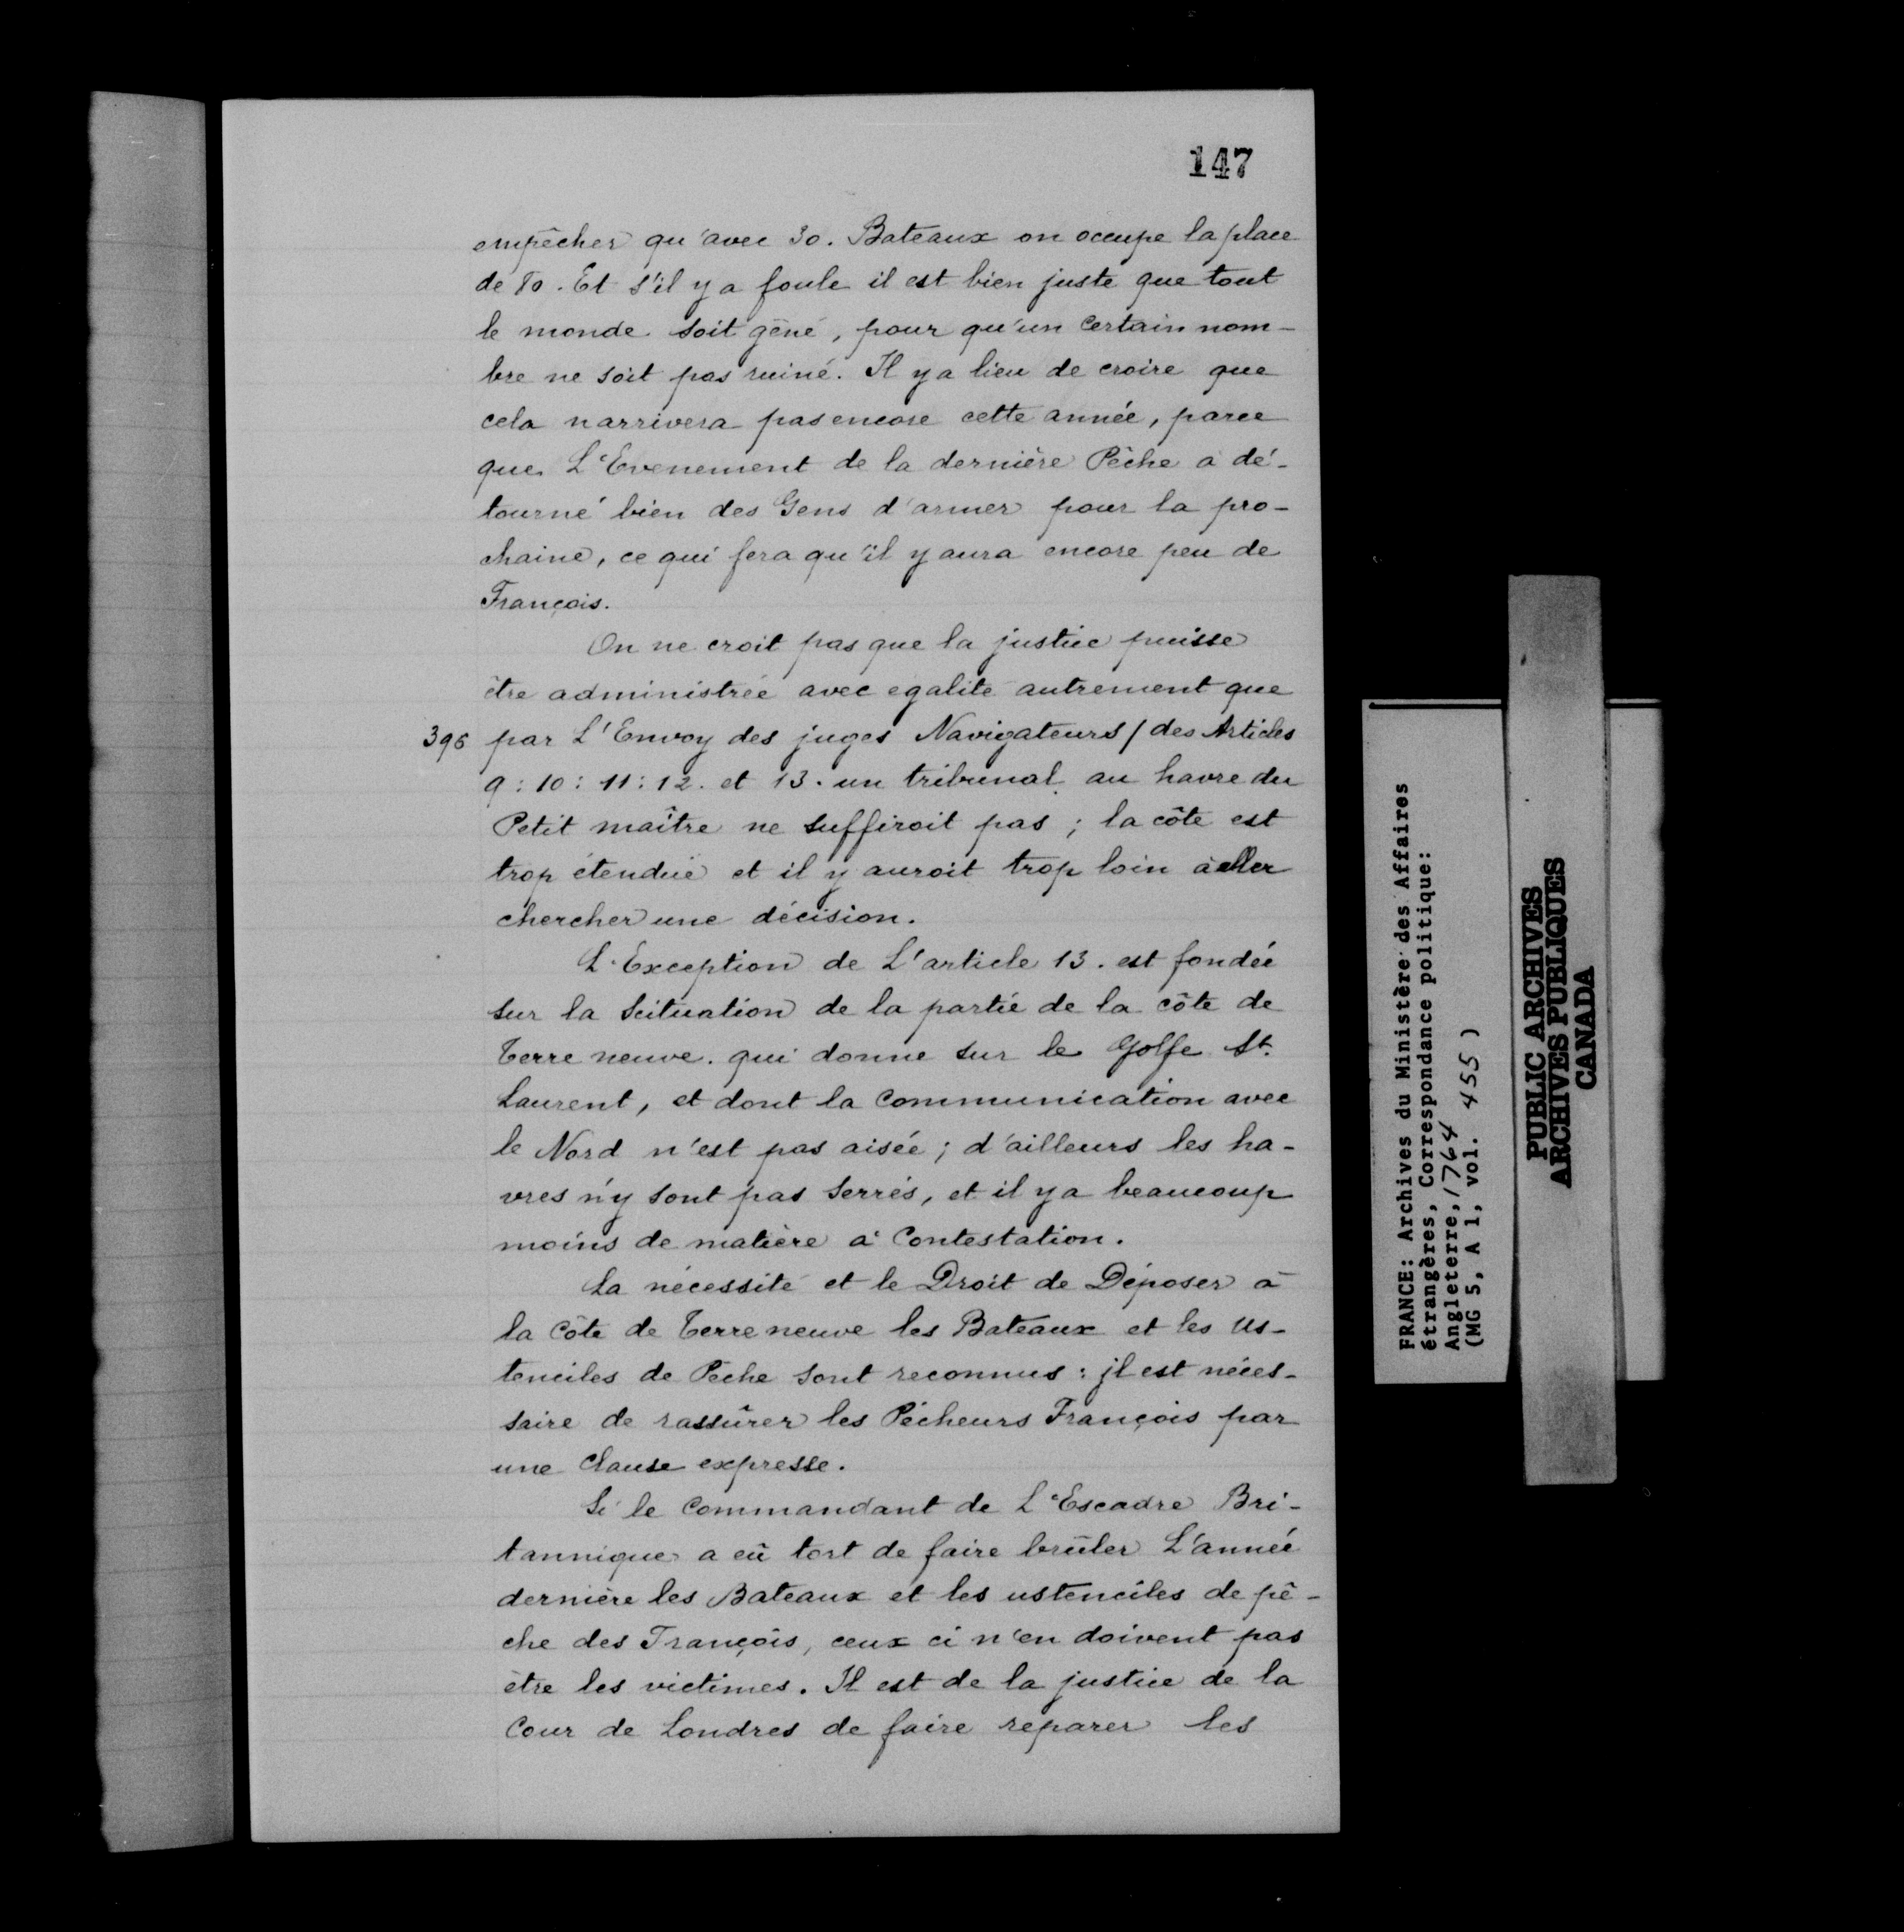 147
empêcher qu'avec 30. Bateaux on occupe la place
de 80. Et s'il y a foule il est bien juste que tout
le monde soit gêné, pour qu'un certain nom-
bre ne soit pas ruiné. Il y a lieu de croire que
cela narrivera pas encore cette année, parce
que L'Evenement de la dernière Pêche a dé-
tourné bien des Gens d'armer pour la pro-
chaine, ce qui fera qu'il y aura encore peu de
François.
On ne croit pas que la justice puisse
être administrée avec egalité autrement que
396 par L'Envoy des juges Navigateurs / des Articles
9: 10: 11: 12. et 13. un tribunal au havre du
Petit maître ne suffiroit pas; la côte est
trop étendüe et il y auroit trop loin à aller
chercher une décision.
L'Exception de L'article 13. est fondée
sur la scituation de la partie de la côte de
Terre neuve. qui donne sur le Golfe St.
Laurent, et dont la communication avec
le Nord n'est pas aisée; d'ailleurs les ha-
vres n'y sont pas serrés, et il y a beaucoup
moins de matière à Contestation.
La nécessité et le Droit de Déposer à
la Côte de Terre neuve les Bateaux et les us-
tenciles de Pêche sont reconnus: jl est néces-
saire de rassûrer les Pécheurs François par
une Clause expresse.
Si le Commandant de L'Escadre Bri-
tannique a eû tort de faire brûler L'année
dernière les Bateaux et les ustenciles de pê-
che des François, ceux ci n'en doivent pas
être les victimes. Il est de la justice de la
Cour de Londres de faire reparer les
FRANCE: Archives du Ministère des Affaires
étrangères, Correspondance politique:
Angleterre, 1764
(MG 5, A 1, vol. 455)
PUBLIC ARCHIVES
ARCHIVES PUBLIQUES
CANADA